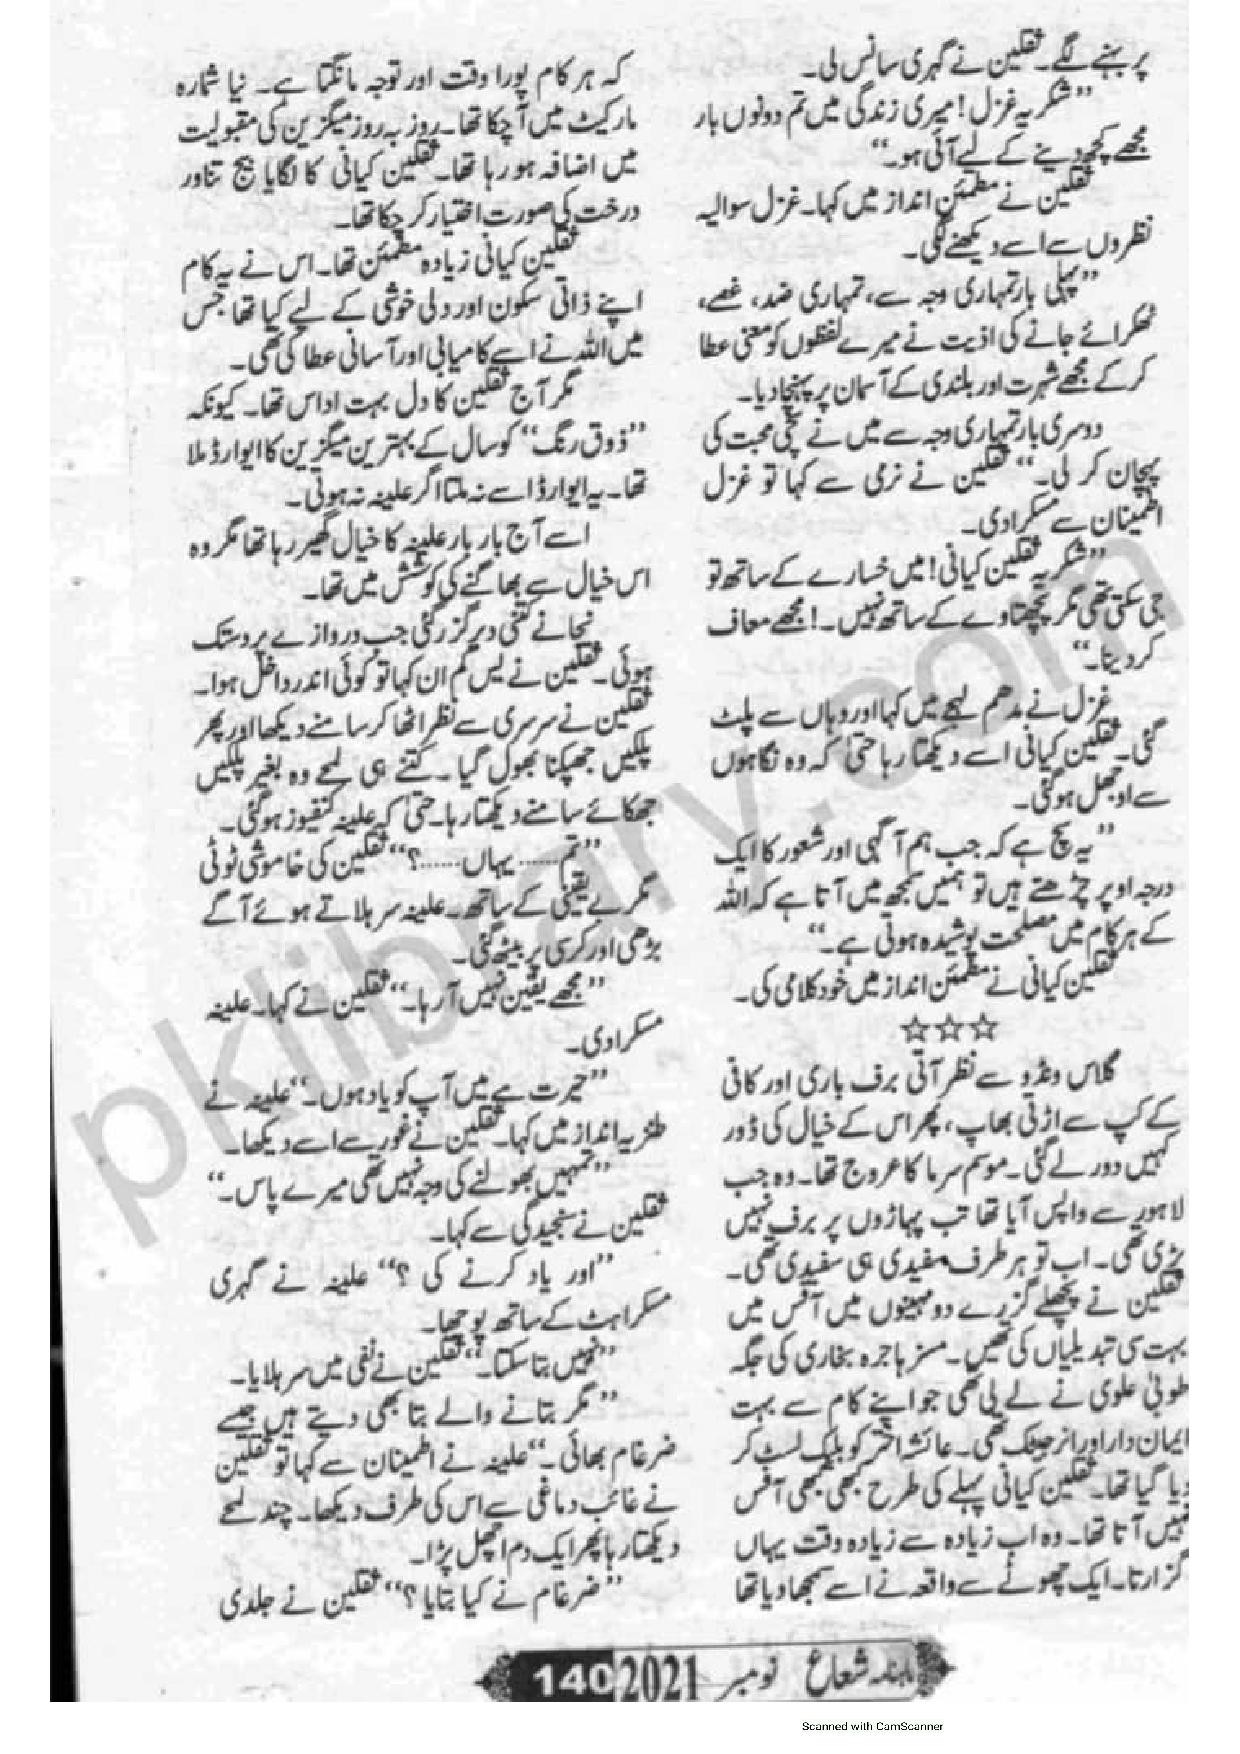 پر بہنے لگے۔ ثقلین نے گہری سانس لی۔
”شکریہ غزل! میری زندگی میں تم دونوں بار
مجھے کچھ دینے کے لیے آئی ہو۔“
ثقلین نے مطمئن انداز میں کہا۔ غزل سوالیہ
نظروں سے اسے دیکھنے لگی۔
”پہلی بار تمہاری وجہ سے، تمہاری ضد، غصے،
ٹھکرائے جانے کی اذیت نے میرے لفظوں کو معنی عطا
کر کے مجھے شہرت اور بلندی کے آسمان پر پہنچا دیا۔
دوسری بار تمہاری وجہ سے میں نے سچی محبت کی
پہچان کر لی۔“ ثقلین نے نرمی سے کہا تو غزل
اطمینان سے مسکرا دی۔
”شکریہ ثقلین کیانی! میں خسارے کے ساتھ تو
جی سکتی تھی مگر پچھتاوے کے ساتھ نہیں۔! مجھے معاف
کر دینا۔“
غزل نے مدھم لہجے میں کہا اور وہاں سے پلٹ
گئی۔ ثقلین کیانی اسے دیکھتا رہا حتیٰ کہ وہ نگاہوں
سے اوجھل ہو گئی۔
”یہ سچ ہے کہ جب ہم آگہی اور شعور کا ایک
درجہ اوپر چڑھتے ہیں تو ہمیں سمجھ میں آتا ہے کہ اللہ
کے ہر کام میں مصلحت پوشیدہ ہوتی ہے۔“
ثقلین کیانی نے مطمئن انداز میں خود کلامی کی۔
☆☆☆
گلاس ونڈو سے نظر آتی برف باری اور کافی
کے کپ سے اڑتی بھاپ، پھر اس کے خیال کی ڈور
کہیں دور لے گئی۔ موسم سرما کا عروج تھا۔ وہ جب
لاہور سے واپس آیا تھا تب پہاڑوں پر برف نہیں
پڑی تھی۔ اب تو ہر طرف سفیدی ہی سفیدی تھی۔
ثقلین نے پچھلے گزرے دو مہینوں میں آفس میں
بہت سی تبدیلیاں کی تھیں۔ مسز ہاجرہ بخاری کی جگہ
طوبیٰ علوی نے لے لی تھی جو اپنے کام سے بہت
ایمان دار اور انرجیٹک تھی۔ عائشہ اختر کو بلیک لسٹ کر
دیا گیا تھا۔ ثقلین کیانی پہلے کی طرح کبھی کبھی آفس
نہیں آتا تھا۔ وہ اب زیادہ سے زیادہ وقت یہاں
گزارتا۔ ایک چھوٹے سے واقعہ نے اسے سمجھا دیا تھا
کہ ہر کام پورا وقت اور توجہ مانگتا ہے۔ نیا شمارہ
مارکیٹ میں آ چکا تھا۔ روز بہ روز میگزین کی مقبولیت
میں اضافہ ہو رہا تھا۔ ثقلین کیانی کا لگایا بیج تناور
درخت کی صورت اختیار کر چکا تھا۔
ثقلین کیانی زیادہ مطمئن تھا۔ اس نے یہ کام
اپنے ذاتی سکون اور دلی خوشی کے لیے کیا تھا جس
میں اللہ نے اسے کامیابی اور آسانی عطا کی تھی۔
مگر آج ثقلین کا دل بہت اداس تھا۔ کیونکہ
”ذوق رنگ“ کو سال کے بہترین میگزین کا ایوارڈ ملا
تھا۔ یہ ایوارڈ اسے نہ ملتا اگر علینہ نہ ہوتی۔
اسے آج بار بار علینہ کا خیال گھیر رہا تھا مگر وہ
اس خیال سے بھاگنے کی کوشش میں تھا۔
نجانے کتنی دیر گزر گئی جب دروازے پر دستک
ہوئی۔ ثقلین نے یس کم ان کہا تو کوئی اندر داخل ہوا۔
ثقلین نے سرسری سے نظر اٹھا کر سامنے دیکھا اور پھر
پلکیں جھپکنا بھول گیا۔ کتنے ہی لمحے وہ بغیر پلکیں
جھپکائے سامنے دیکھتا رہا۔ حتیٰ کہ علینہ کنفیوز ہو گئی۔
”تم...... یہاں......؟“ ثقلین کی خاموشی ٹوٹی
مگر بے یقینی کے ساتھ۔ علینہ سر ہلاتے ہوئے آگے
بڑھی اور کرسی پر بیٹھ گئی۔
”مجھے یقین نہیں آ رہا۔“ ثقلین نے کہا۔ علینہ
مسکرا دی۔
”حیرت ہے میں آپ کو یاد ہوں۔“ علینہ نے
طنزیہ انداز میں کہا۔ ثقلین نے غور سے اسے دیکھا۔
”تمہیں بھولنے کی وجہ نہیں تھی میرے پاس۔“
ثقلین نے سنجیدگی سے کہا۔
”اور یاد کرنے کی؟“ علینہ نے گہری
مسکراہٹ کے ساتھ پوچھا۔
”نہیں بتا سکتا۔“ ثقلین نے نفی میں سر ہلایا۔
”مگر بتانے والے بتا بھی دیتے ہیں جیسے
ضرغام بھائی۔“ علینہ نے اطمینان سے کہا تو ثقلین
نے غائب دماغی سے اس کی طرف دیکھا۔ چند لمحے
دیکھتا رہا پھر ایک دم اچھل پڑا۔
”ضرغام نے کیا بتایا؟“ ثقلین نے جلدی
ماہنامہ شعاع نومبر 2021 140
pklibrary.com
Scanned with CamScanner